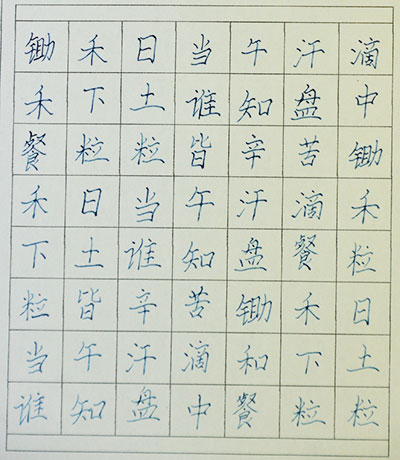 锄禾日当午汗滴
禾下土谁知盘中
餐粒粒皆辛苦锄
禾日当午汗滴禾
下土谁知盘餐粒
粒皆辛苦锄禾日
当午汗滴和下土
谁知盘中餐粒粒